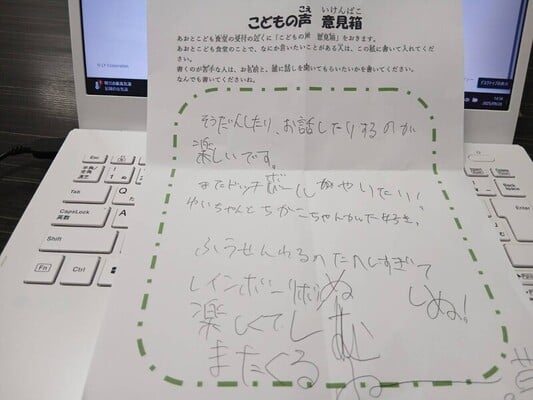 こどもの声 意見箱
こえ いけんばこ
あおとこども食堂の受付の近くに「こどもの声 意見箱」をおきます。
あおとこども食堂のことで、なにか言いたいことがある人は、この紙に書いて入れてください。
書くのが苦手な人は、お名前と、誰に話しを聞いてもらいたいかを書いてください。
なんでも書いてくださいね。
そうだんしたり、お話したりするのが
楽しいです。
またドッチボールがやりたい!
ゆいちゃんとちかこちゃんが大好き。
ふうせんわるのたのしすぎて
しぬ!
レインボーリボン
楽しくてし
またくるね
Esc
半角/全角
漢字
Tab
Q
た
CapsLock
英数
A
Shift
Z
Fn
Ctrl
Back
Space
Enter
Shift